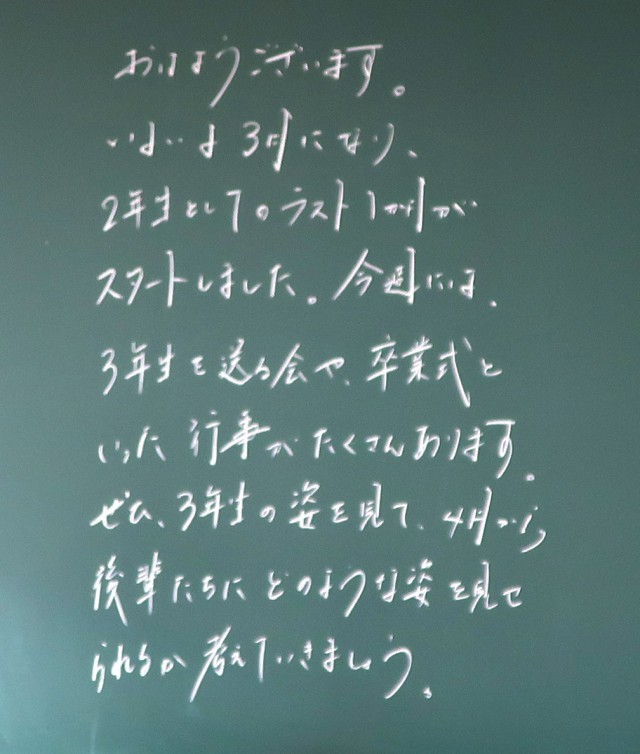 おはようございます。
いよいよ3月になり、
2年生としてのラスト1か月が
スタートしました。今週には、
3年生を送る会や、卒業式と
いった行事がたくさんあります。
ぜひ、3年生の姿を見て、4月から、
後輩たちにどのような姿を見せ
られるか考えていきましょう。